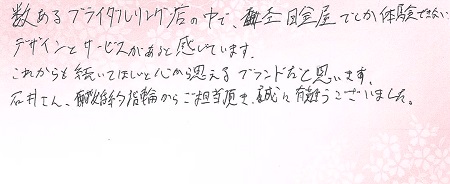 数あるブライダルリング店の中で、杢目金屋でしか体験できない
デザインとサービスがあると感じています。
これからも続いてほしいと心から思えるブランドだと思います。
石井さん、婚約指輪からご担当頂き、誠に有難うございました。